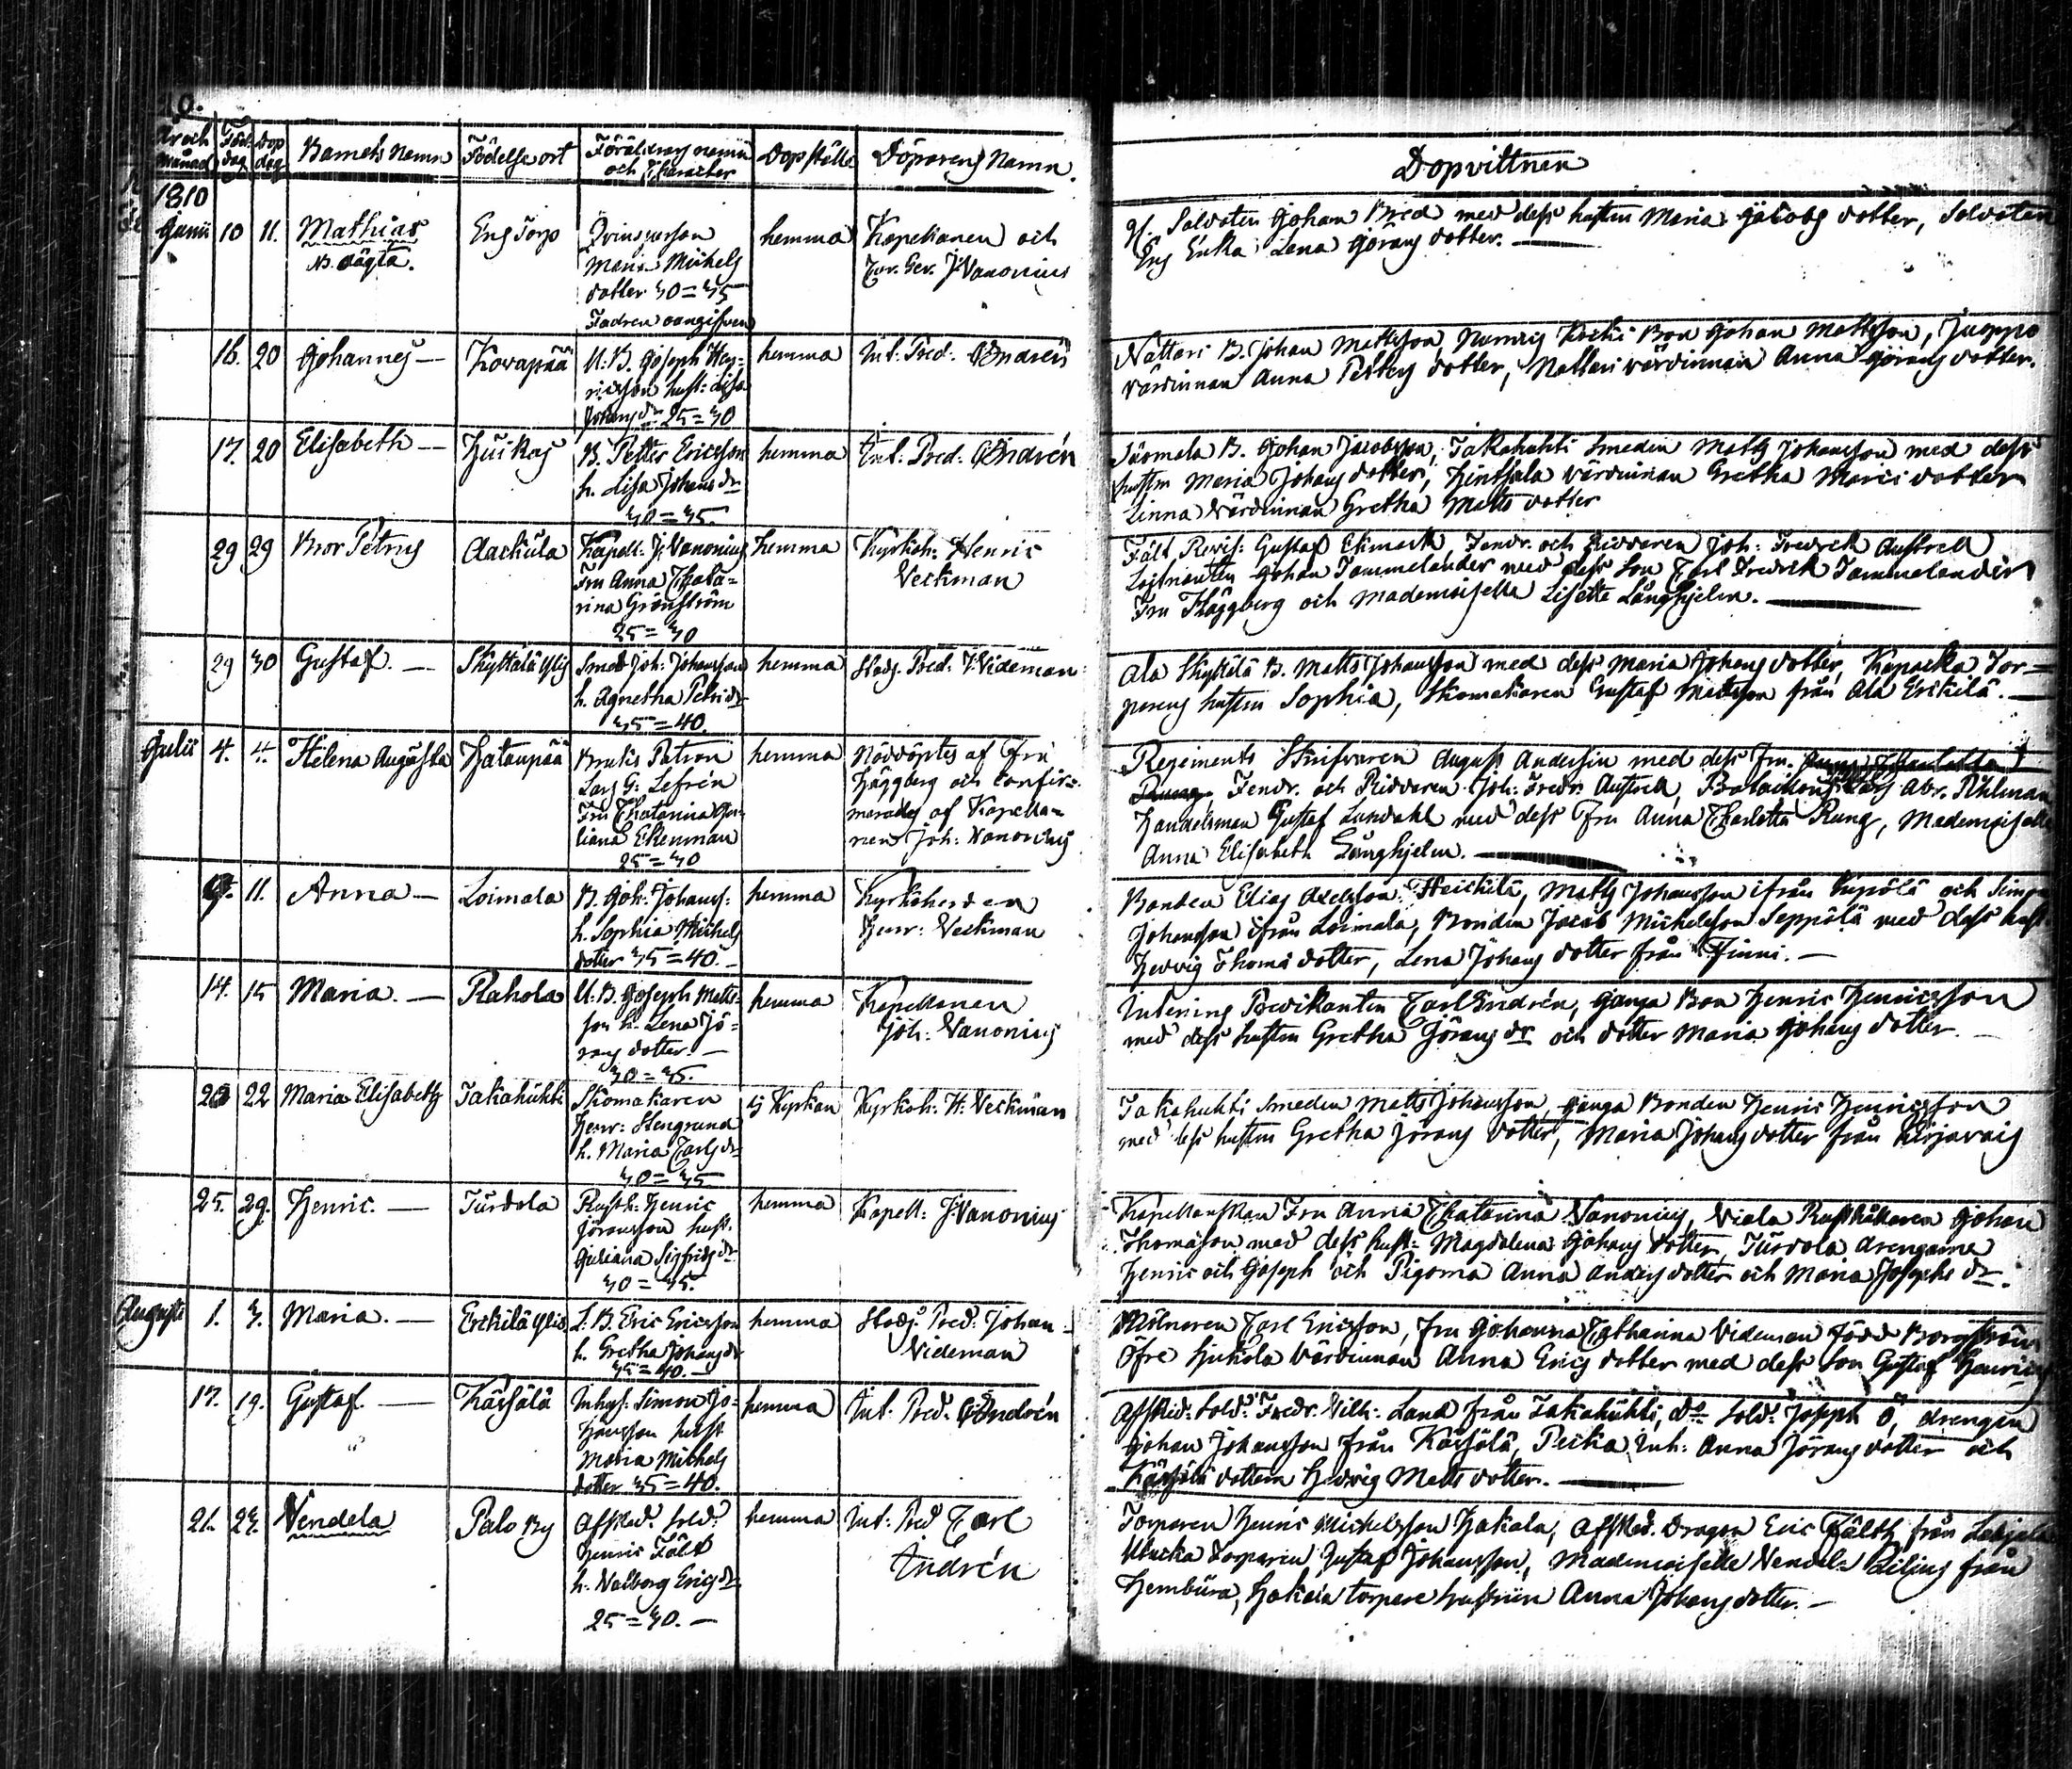 10.
År och Månad
Föd. dag
Dop dag
Barnets Namn
Födelse ort
Föräldrars namn och Character
Dopställe
Döparens Namn.
Dopvittnen
1810
Junii 10 11. Mathias
N. oägta.
Eng Torp
Maria Michels
dotter 30=35
Fadren oangifven
hemma
Kapellanen och
J: Vanonius
Soldaten Johan Bred med dess hustru Maria Jacobs dotter, Soldaten
Eng Enka Lena Görans dotter.
16. 20 Johannes —
Kovapää
U. B. Joseph Hen-
ricsson hust: Lisa
Johans dr 25=30
hemma
Int. Pred: C Indrén
Nattari B. Johan Mattsson, Bon Johan Mattsson, Juoppo
värdinnan Anna Petters dotter, Nattari värdinnan Anna Görans dotter.
17. 20 Elisabeth —
B. Petter Ericsson
h. Lisa Johans dr
30=35.
hemma
Int: Pred: C Indrén
B. Johan Jacobsson, Takahuhti Smeden Matts Johansson med dess
hustru Maria Johans dotter, värdinnan Gretha
Linna Värdinnan Gretha Matts dotter
29 29 Bror Petrus
Aackula
Kapell: J: Vanonius
Fru Anna Chata=
rina Grönström
25=30
hemma
Kyrkoh: Henric
Veckman
Fält Gustaf Ekmark, Fendr. och Riddaren Joh: Fredrik Austrell
Johan Tammelander med dess Son Carl Fredrik Tammelander
Fru Häggberg och Mademoiselle Lisette Långhjelm.
29 30 Gustaf. —
Skyttälä Ylis
Smed Joh: Johansson
h. Agnetha Petri dr
35=40.
hemma
Stads Pred. J: Videman
Ala Skyttälä B. Matts Johansson med dess Maria Johans dotter, Tor=
parens hustru Sophia, Skomakaren Gustaf Mattsson från Ala Erckilä.
Julii 4. 4. Helena Augusta
Hatanpää
Bruks Patron
Lars G: Lefrén
Fru Chatarina Ju-
liana Ekenman
25=30
hemma
Nöddöptes af Fru
Häggberg och confir=
merades af Kapella=
nen Joh: Vanonius
Regements Skrifvaren August Andersin med dess Fru.
Fendr. och Riddaren Joh: Fredr: Austrell, Abr. Pihlman
Handelsman Gustaf Lundahl med dess Fru Anna Charlotta Rung, Mademoiselle
Anna Elisabeth Långhjelm.
9. 11. Anna —
Loimala
B. Joh: Johans:
h. Sophia Michels
dotter 35=40. —
hemma
Kyrkoherden
Henr: Veckman
Bonden Elias Axelsson Heickilä, Matts Johansson ifrån och
Johansson ifrån Loimala, Bonden Jacob Michelsson Seppälä med dess hust
Hedvig Thomæ dotter, Lena Johans dotter från Finni. —
14. 15 Maria. —
Rahola
U. B. Joseph Matts-
son h. Lena Jö=
rans dotter. —
30=35.
hemma
Kapellanen
Joh: Vanonius
Predikanten Carl Indrén, Ganga Bon Henric Henricsson
med dess hustru Gretha Jörans dr och dotter Maria Johans dotter. —
20 22 Maria Elisabeth
Takahuhti
Skomakaren
Henr: Stengrund
h. Maria Carls dr
30=35
i Kyrkan
Kyrkoh: H: Veckman
Takahuhti Smeden Matts Johansson, Ganga Bonden Henric Henricsson
med dess hustru Gretha Jörans dotter, Maria Johans dotter från
25. 29. Henric. —
Turdola
Rusth: Henric
Göransson hust.
Juliana Sigfrids dr
30=35.
hemma
Kapell: J: Vanonius
Kapellanskan Fru Anna Chatarina Vanonius, Viala Rusthållaren Johan
Thomasson med dess hust: Magdalena Johans dotter, Turdola drengarne
Henric och Joseph och Pigorna Anna Anders dotter och Maria Josephs dr.
Augusti 1. 3. Maria. —
Erckilä Ylis
L. B. Eric Ericsson
h. Gretha Johans dr
35=40. —
hemma
Stads: Pred: Johan
Videman
Mölnaren Carl Ericsson, Fru Johanna Catharina Videman född Borgström
Öfre värdinnan Anna Erics dotter med dess Son Gustaf Henrics
17. 19. Gustaf. —
Kässälä
Inhys: Simon Jo=
hansson hust
Maria Michels
dotter 35=40.
hemma
Int: Pred. C Indrén
Afsked: Sold: Fredr. Vilh: Land från Takahuhti, do Sold: Joseph Ö, drengen
Johan Johansson från Kässälä, Inh: Anna Jörans dotter och
Kässälä dottern Hedvig Matts dotter.
21. 23. Vendela
Palo By
Afsked. sold:
Henric Fält
h. Valborg Erics dr
25=30. —
hemma
Int: Pred Carl
Indrén
Torparen Henric Michelsson Hakala, Afsked. Dragon Eric Fält från
Torparen Gustaf Johansson, Mademoiselle Vendela Lilius från
Hakala torpare hustrun Anna Johans dotter. —